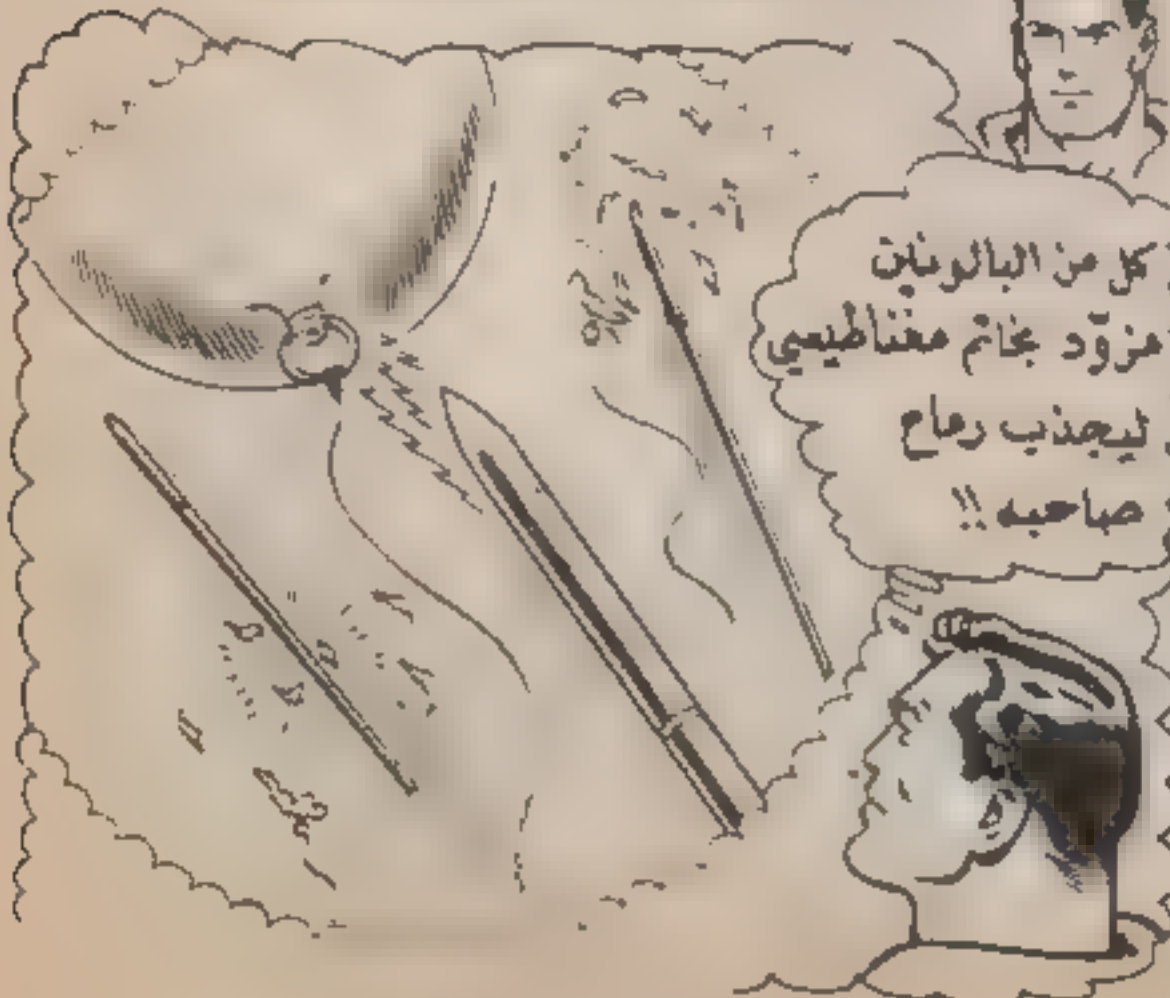 كل من البالونين
مزوّد بخاتم مغناطيسي
ليجذب رماح
صاحبه !!